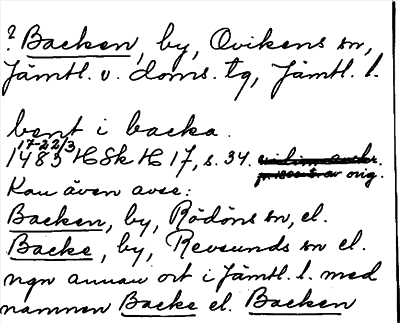 ? Backen, by, Ovikens sn,
Jämtl. v. doms. tg, Jämtl. l.
bent i backa.
17-22/3
1483 HSkH 17, s. 34.
fr. 1800-t. av orig.
Kan även avse:
Backen, by, Rödöns sn, el.
Backe, by, Revsunds sn el.
ngn annan ort i Jämtl. l. med
namnen Backe el. Backen